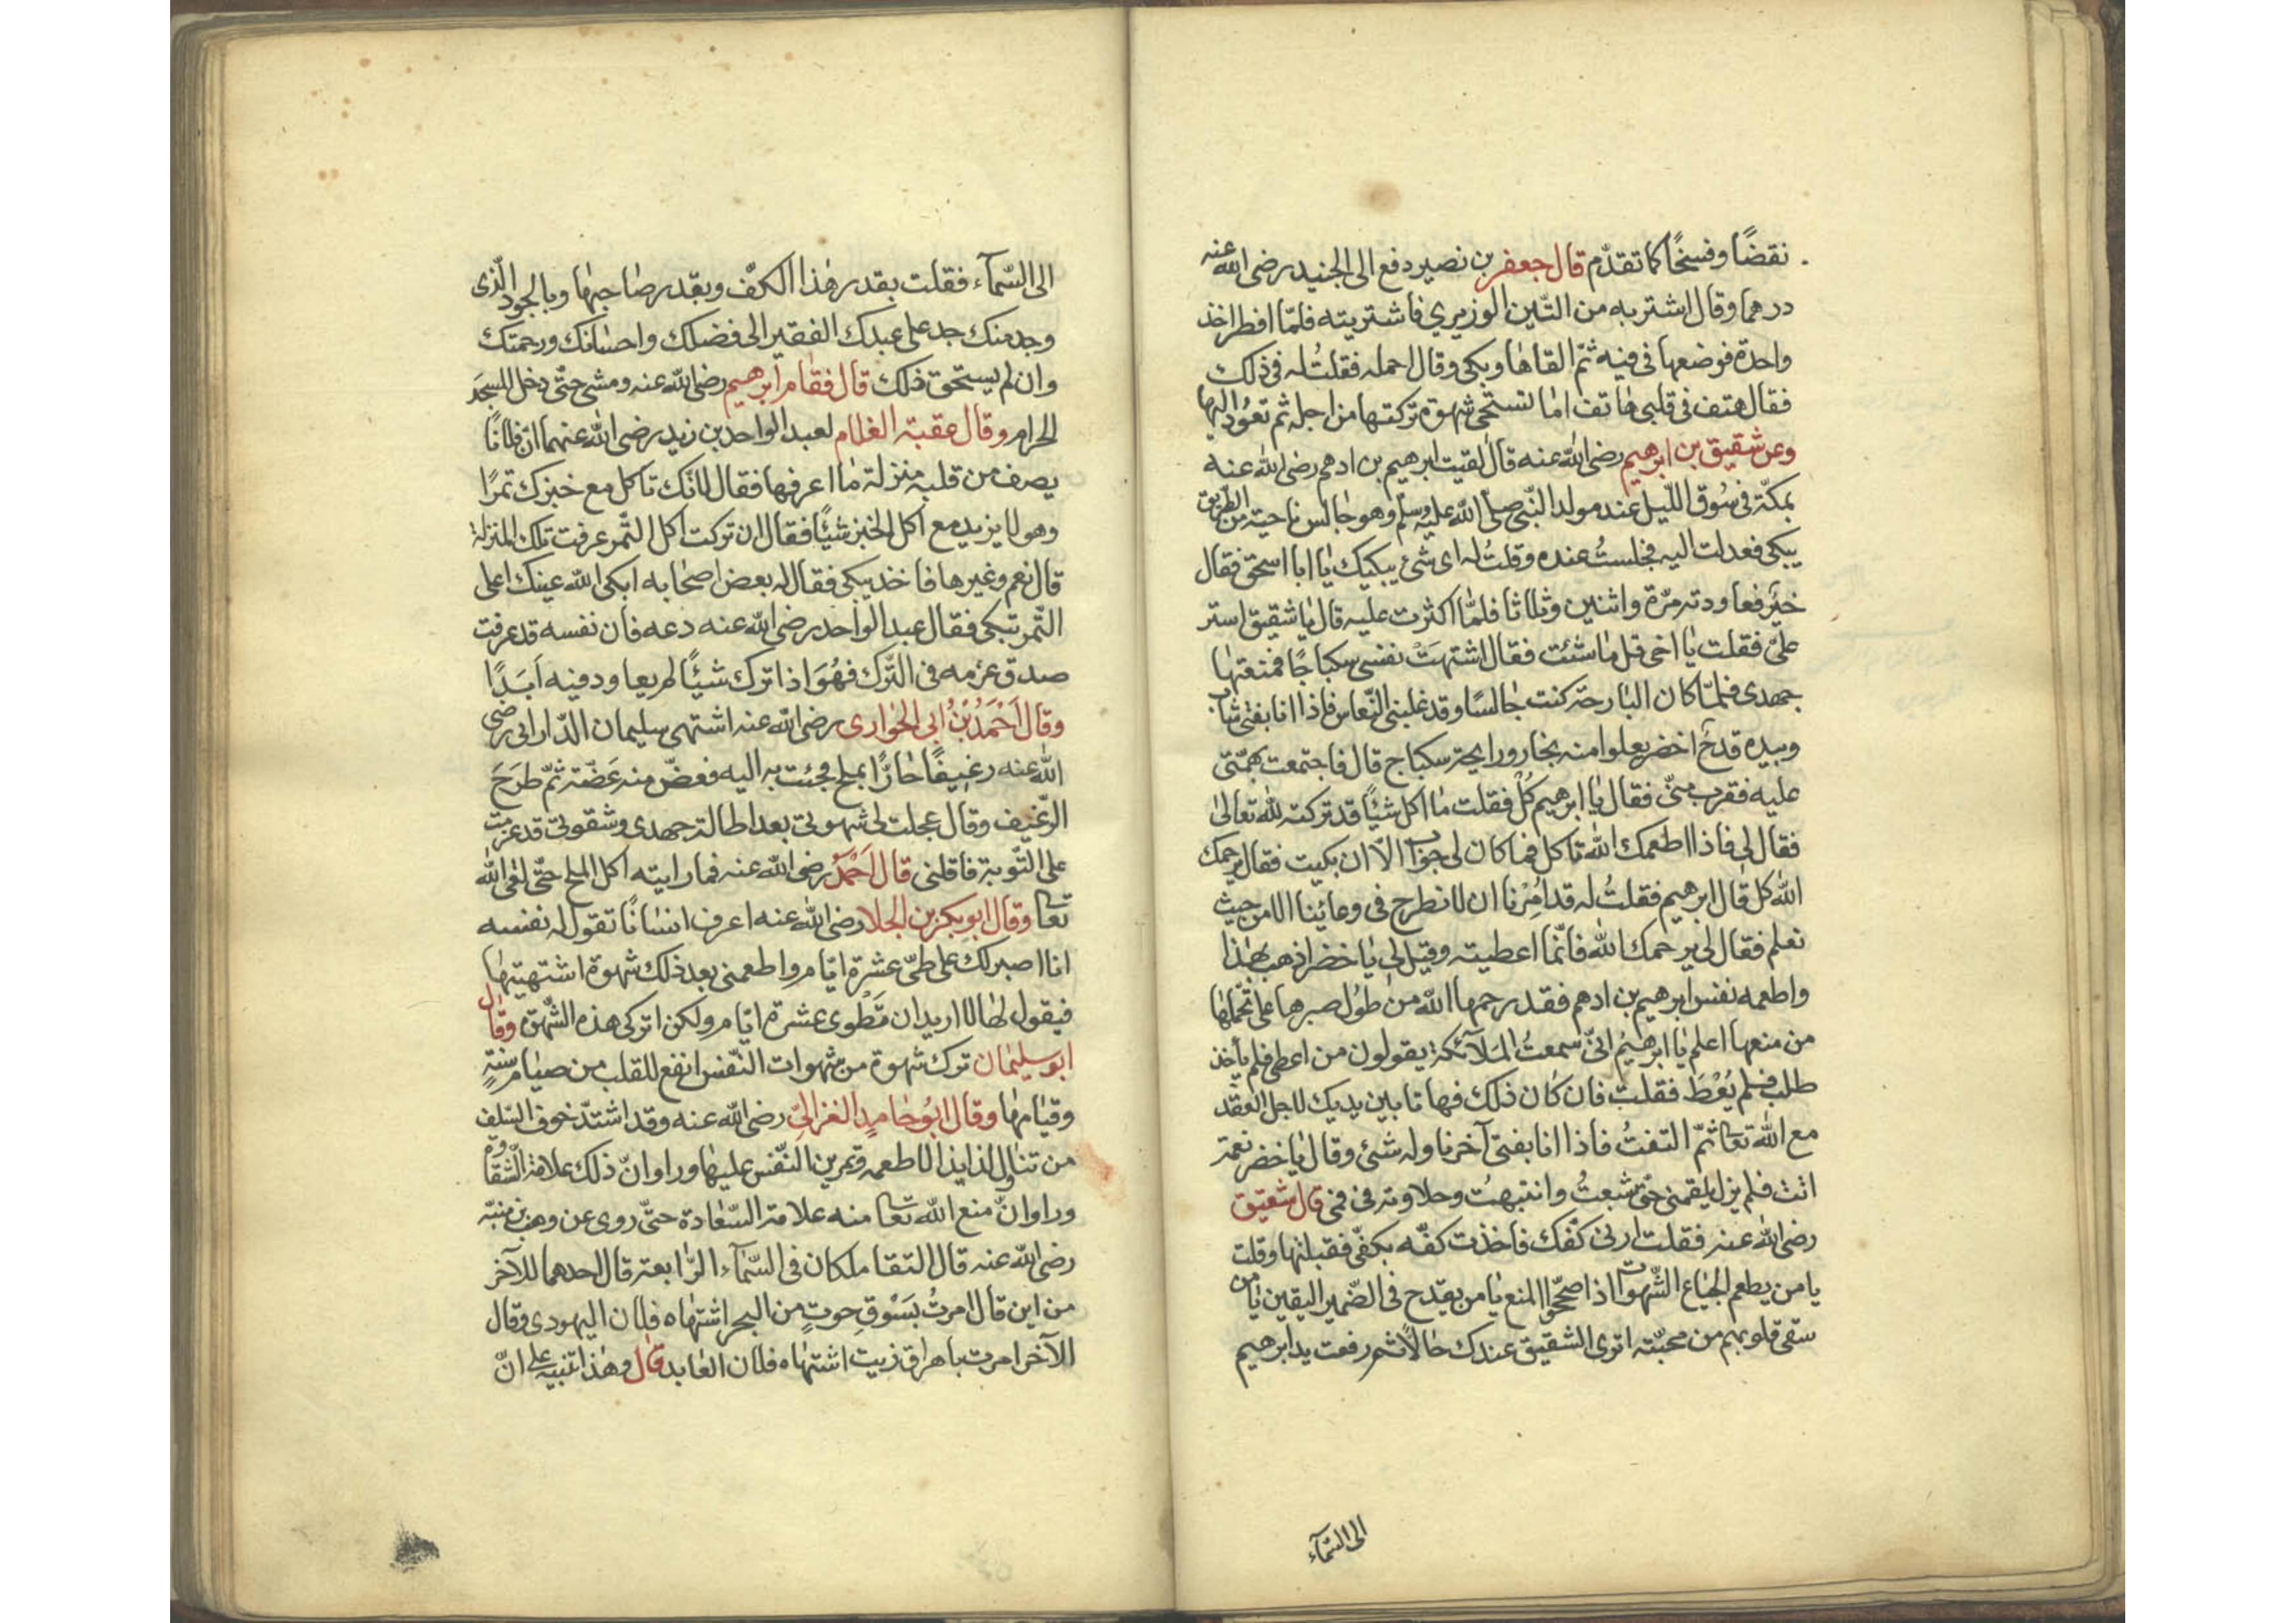 نقضًا وفسخًا كما تقدّم قال جعفر بن نصير دفع الى الجنيد رضى الله عنه
درهما وقال اشتر به من التّين الوزيري فاشتريته فلمّا افطر اخذ
واحدة فوضعها فى فيه ثمّ القاها وبكى وقال احمله فقلتُ له فى ذلك
فقال هتف فى قلبى هاتف اما تستحى شهوة تركتها من اجله ثم تعود اليها
وعن شقيق بن ابرهيم رضى الله عنه قال لقيت ابرهيم بن ادهم رضى الله عنه
بمكّة فى سُوق اللّيل عند مولد النّبى صلى الله عليه وسلم وهو جالس ناحية من الطريق
يبكى فعدلت اليه فجلستُ عنده وقلتُ له اى شئ يبكيك يا ابا اسحق فقال
خير فعاودته مرّة واثنين وثلاثا فلمّا اكثرت عليه قال يا شقيق استر
علىّ فقلت يا اخى قل ما شئت فقال اشتهَتْ نفسى سكباجًا فمنعتها
جهدى فلمّا كان البارحة كنت جالسًا وقد غلبنى النّعاس فاذا انا بفتى شاب
وبيده قدح اخضر يعلوا منه بخار ورايحة سكباج قال فاجتمعت بهمّتى
عليه فقرب منّى فقال يا ابرهيم كُلْ فقلت ما اكل شيئًا قد تركته لله تعالى
فقال لى فاذا اطعمك الله تاكل فما كان لى جواب الّا ان بكيت فقال يرحمك
الله كل قال ابرهيم فقلتُ له قد اُمِرْنا ان لا نطرح فى وعائينا الا من حيث
نعلم فقال لى يرحمك الله فانّما اعطيته وقيل لى يا خضر اذهب بهذا
واطعمه نفس ابرهيم بن ادهم فقد رحمها الله من طول صبرها على تحمّلها
من منعها اعلم يا ابرهيم انّى سمعتُ الملآئكة يقولون من اعطى فلم يأخذ
طلب فلم يُعْطَ فقلت فان كان ذلك فها نا بين يديك لاجل العقد
مع الله تعا ثمّ التفتُ فاذا انا بفتى آخر ناوله شئ وقال يا خضر نعمة
انت فلم يزل يلقمنى حتى شبعتُ وانتبهتُ وحلاوته فى فمى قال شقيق
رضى الله عنه فقلت ارنى كفّك فاخذت كفّه بكفّى فقبلتها وقلت
يا من يطعم الجياع الشّهوات اذا صحّحوا المنع يا من يقدح فى الضّمير اليقين يا من
سقى قلوبهم من محبّته اترى الشقيق عندك حالًا ثم رفعت يد ابرهيم
الى السّمآء
الى السّمآء فقلت بقدر هذا الكفّ وبقدر صاحبها وبالجود الّذى
وجد منك جد على عبدك الفقير الى فضلك واحسانك ورحمتك
وان لم يستحق ذلك قال فقام ابرهيم رضى الله عنه ومشى حتّى دخل المسجد
الحرام وقال عقبة الغلام لعبد الواحد بن زيد رضى الله عنهما انّ فلانًا
يصف من قلبه منزلة ما اعرفها فقال لانّك تاكل مع خبزك تمرًا
وهو لا يزيد مع اكل الخبز شيئًا فقال ان تركت اكل التّمر عرفت تلك المنزلة
قال نعم وغيرها فاخذ يبكى فقال له بعض اصحابه ابكى الله عينك اعلى
التّمر تبكى فقال عبد الواحد رضى الله عنه دعه فان نفسه قد عرفت
صدق عزمه فى التّرك فهُوَ اذا ترك شيئًا لم يعاود فيه اَبَدًا
وقال اَحْمَدُ بْنُ ابى الحوارى رضى الله عنه اشتهى سليمان الدّارانى رضى
الله عنه رغيفًا حارًّا بملح فجئت به اليه فعضّ منه عَضّة ثمّ طَرَحَ
الرّغيف وقال عجلت لى شهوتى بعد اطالة جهدى وشقوتى قد عزمت
على التّوبة فاقلنى قال اَحْمَدُ رضى الله عنه فما رايته اكل الملح حتّى لقى الله
تعا وقال ابو بكر بن الجلا رضى الله عنه اعرف انسانًا تقول له نفسه
انا اصبر لك على طىّ عشرة ايّام واطعمنى بعد ذلك شهوة اشتهيتها
فيقول لها لا اريد ان تَطْوى عشرة ايّام ولكن اتركى هذه الشّهوة وقال
ابو سليمان ترك شهوة من شهوات النّفس انفع للقلب من صيام سنةٍ
وقيامها وقال ابُو حامِدٍ الغزالىّ رضى الله عنه وقد اشتدّ خوف السّلف
من تناول لذايذ الاطعمه وتمرين النّفس عليها وراوا انّ ذلك علامة الشّقاوة
وراوا انّ منع الله تعا منه علامة السّعادة حتّى روى عن وهب بن منبّه
رضى الله عنه قال التقا ملكان فى السّمآء الرّابعة قال احدهما للآخر
من اين قال امرتُ بسَوْقِ حوتٍ من البحر اشتهاه فلان اليهودى وقال
الآخر امرت باهراق زيت اشتهاه فلان العابد قال وهذا تنبيه على انّ